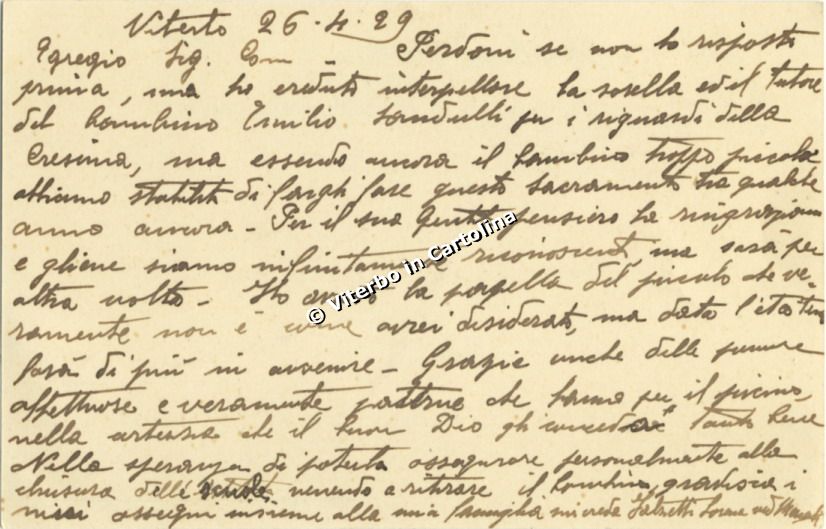 Viterbo 26.4.29
Egregio Sig. Com Perdoni se non ho risposto
prima, ma ho creduto interpellare la sorella ed il tutore
del bambino Emilio Sandulli per i riguardi della
Cresima, ma essendo ancora il bambino troppo piccolo
abbiamo stabilito di farghi fare questo sacramento tra qualche
anno ancora - Per il suo gentil pensiero la ringraziamo
e gliene siamo infinitamente riconoscenti, ma sarà per
altra volta - Ho la pagella del piccolo che ve-
ramente non è come avrei desiderato, ma data l'età ten
farà di più in avvenire - Grazie anche delle premure
affettuose e veramente paterne che hanno per il piccino,
nella certezza che il buon Dio gli conceda tanto bene
Nella speranza di poterla ossequiare personalmente alla
chiusura delle scuole venendo a ritirare il bambino, gradisca i
miei ossequi insieme alla mia famiglia mi creda
© Viterbo in Cartolina